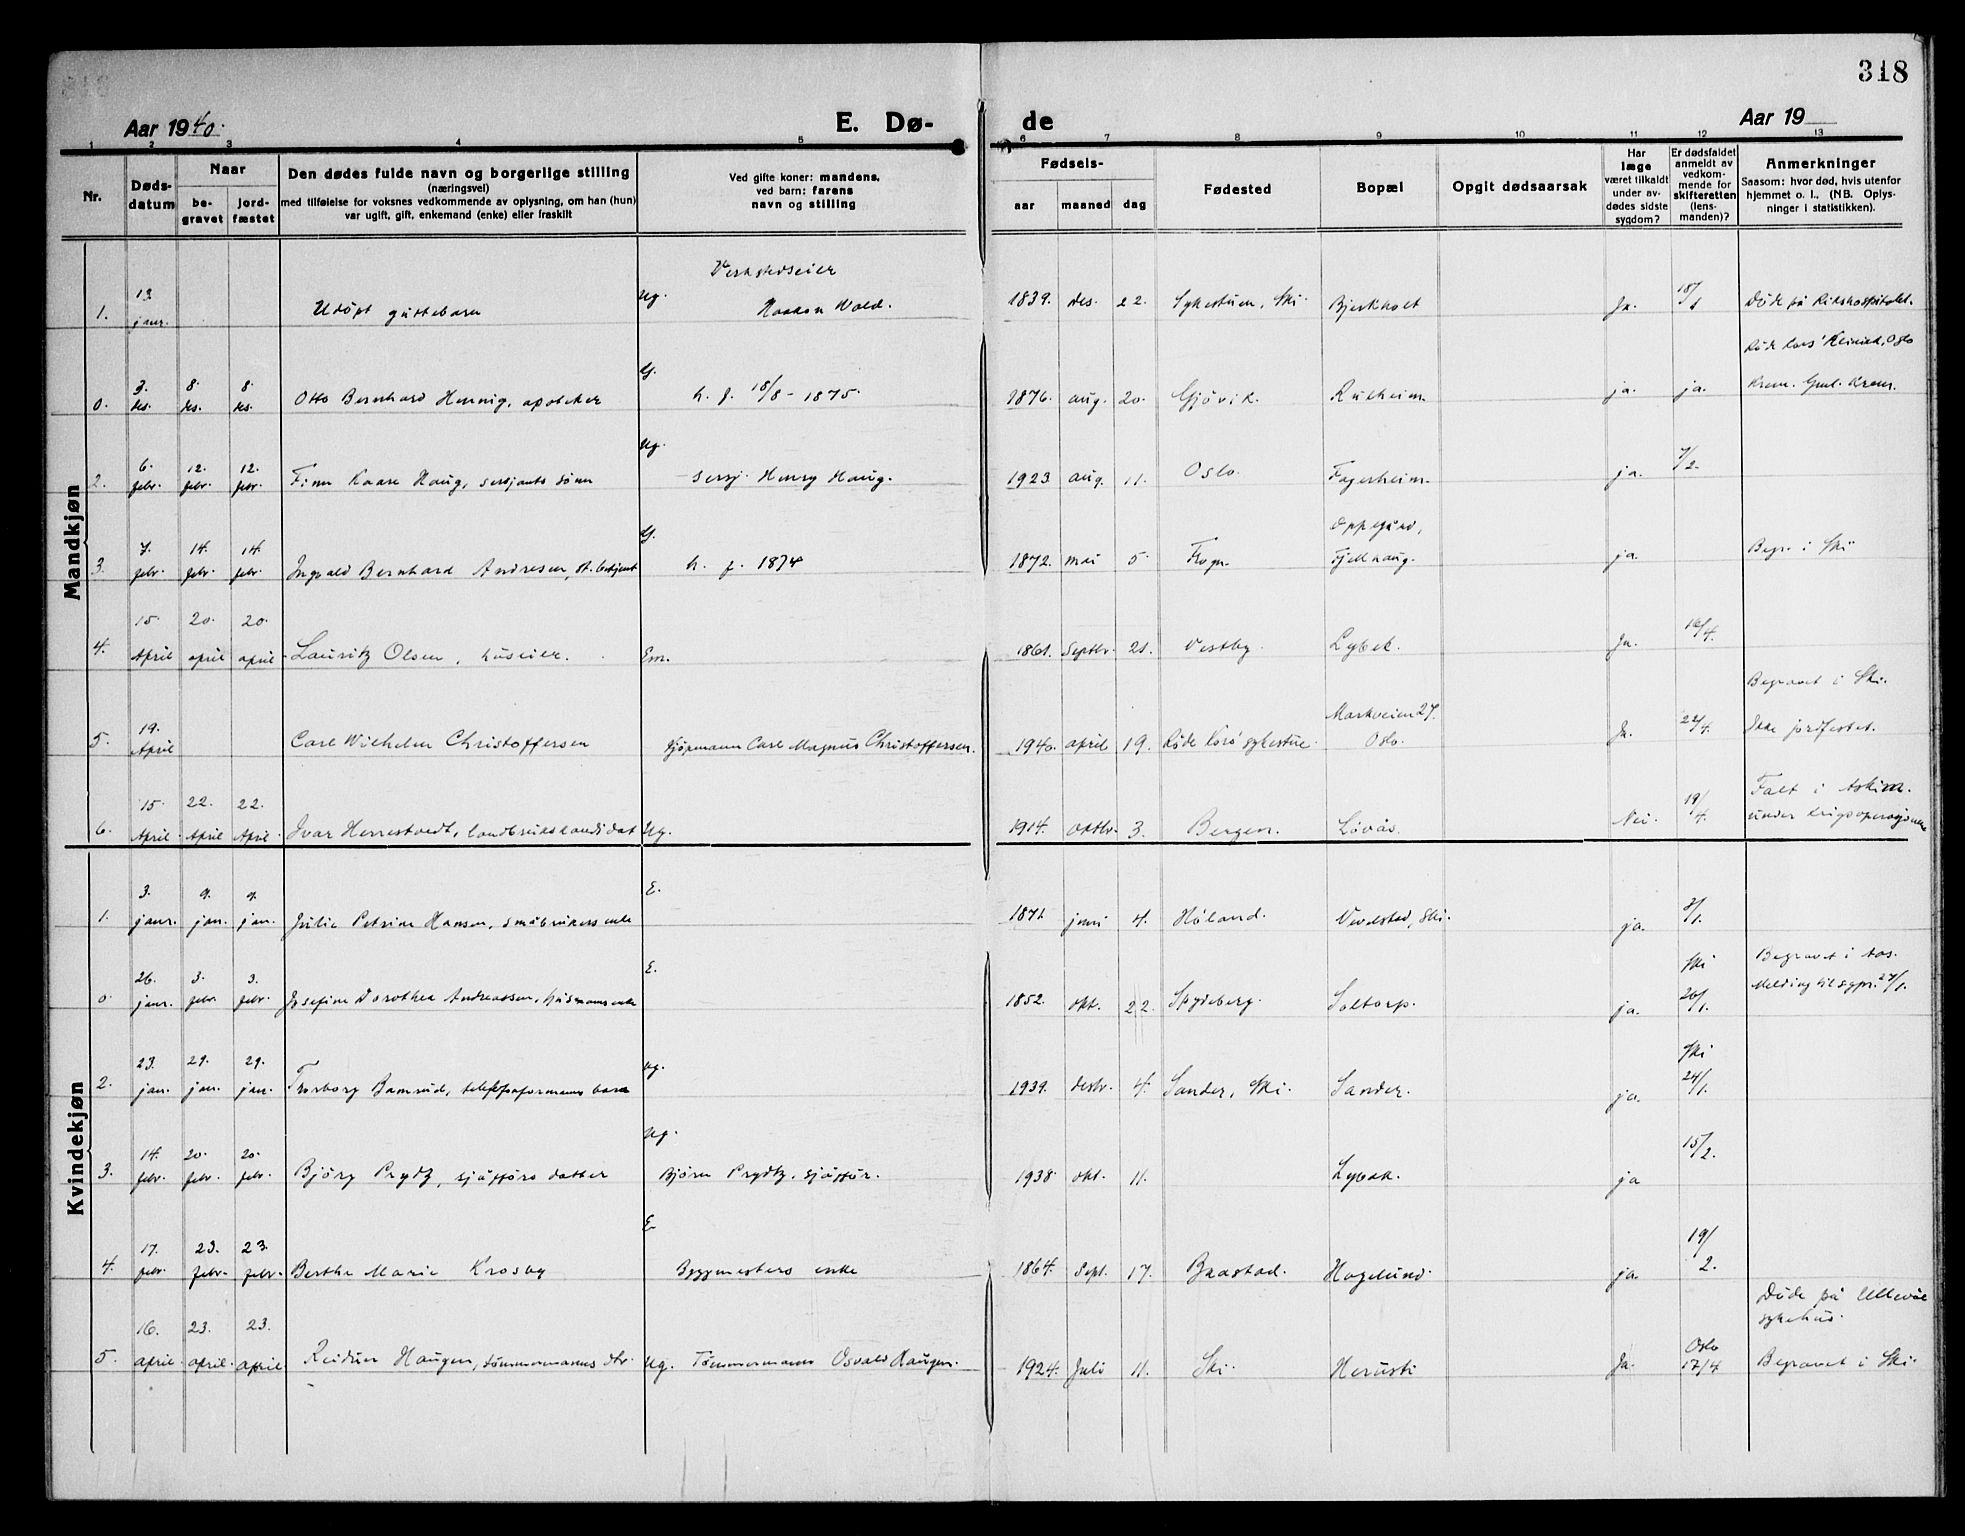 318
Aar 1940.
E. Dø-
de
Aar 19
1 2 3 4 5 6 7 8 9 10 11 12 13
Nr.
Døds-
datum
Naar
be-
gravet
jord-
fæstet
Den dødes fulde navn og borgerlige stilling
(næringsvei)
med tilføielse for voksnes vedkommende av oplysning, om han (hun)
var ugift, gift, enkemand (enke) eller fraskilt
Ved gifte koner: mandens,
ved barn: farens
navn og stilling
Fødsels-
aar maaned dag
Fødested
Bopæl
Opgit dødsaarsak
Har
læge
været tilkaldt
under av-
dødes sidste
sygdom?
Er dødsfaldet
anmeldt av
vedkom-
mende for
skifteretten
(lens-
manden)?
Anmerkninger
Saasom: hvor død, hvis utenfor
hjemmet o. l., (NB. Oplys-
ninger i statistikken).
Mandkjøn
1. 13. janr. Udöpt guttebarn Ug. Verkstedseier Haakon Wold. 1839. des. 22. Sykestuen, Ski. Bjerkholt Ja. 18/1 Døde på Rikshospitalet.
0. 3. des. 8. des. 8. des. Otto Bernhard Hennig, apoteker G. h. f. 18/8 - 1875. 1876. aug. 20. Gjövik. ja. ja. Røde Kors' Klinikk, Oslo
Krem. Gml. Krem.
2. 6. febr. 12. febr. 12. febr. Finn Kaare Haug, sersjants sønn Ug. Sersj. Henry Haug. 1923. aug. 11. Oslo. Fagerheim. ja. 7/2.
3. 7. febr. 14. febr. 14. febr. Ingvald Bernhard Andresen, st. betjent G. h. f. 1874 1872. mai 5. Frogn. Oppegård, Fjellhaug. ja. Begr. i Ski
4. 15. April 20. april 20. april Lauritz Olsen, huseier. Em. 1861. Septbr. 21. Vestby. Lybek. Ja. 16/4.
5. 19. April Carl Wilhelm Christoffersen Kjøpmann Carl Magnus Christoffersen. 1940. april 19. Røde Kors' sykestue. Markveien 27. Oslo. Ja. 22/4. Begravet i Ski.
Ikke jordfestet.
6. 15. April 22. April 22. April Ivar Herrestvedt, landbrukskandidat Ug. 1914. oktbr. 3. Bergen. Løvås. Nei. 19/4. Falt i Askim
under krigsoperasjonene
Kvindekjøn
1. 3. janr. 9. jan. 9. jan. Julie Petrine Hansen, småbrukers enke E. 1871 juni 4. Høland. Vevelstad, Ski. ja. 3/1.
0. 26. janr. 3. febr. 3. febr. Josefine Dorothea Andreassen, husmanns enke E. 1852. okt. 22. Spydeberg. Soltorp. ja. Ski 26/1. Begravet i Aas.
Melding til sgpr. 27/1.
2. 23. jan. 29. jan. 29. jan. Thorborg Bamrud, barn ug. 1939. desbr. 4. Sander, Ski. Sander. ja. Ski 24/1.
3. 14. febr. 20. febr. 20. febr. Björg Prydtz, sjåførs datter Ug. Bjørn Prydtz, sjåfør. 1938. okt. 11. Lybek. ja 15/2.
4. 17. febr. 23. febr. 23. febr. Berthe Marie Krosby E. Byggmesters enke 1864. Sept. 17. Baastad. Hagelund. ja. 19/2.
5. 16. april. 23. april. 23. april Reidun Haugen, tømmermanns dtr. Ug. Tømmermann Osvald Haugen. 1924. Juli 11. Ski. Ja. Oslo 17/4 Døde på Ullevål
sykehus.
Begravet i Ski.